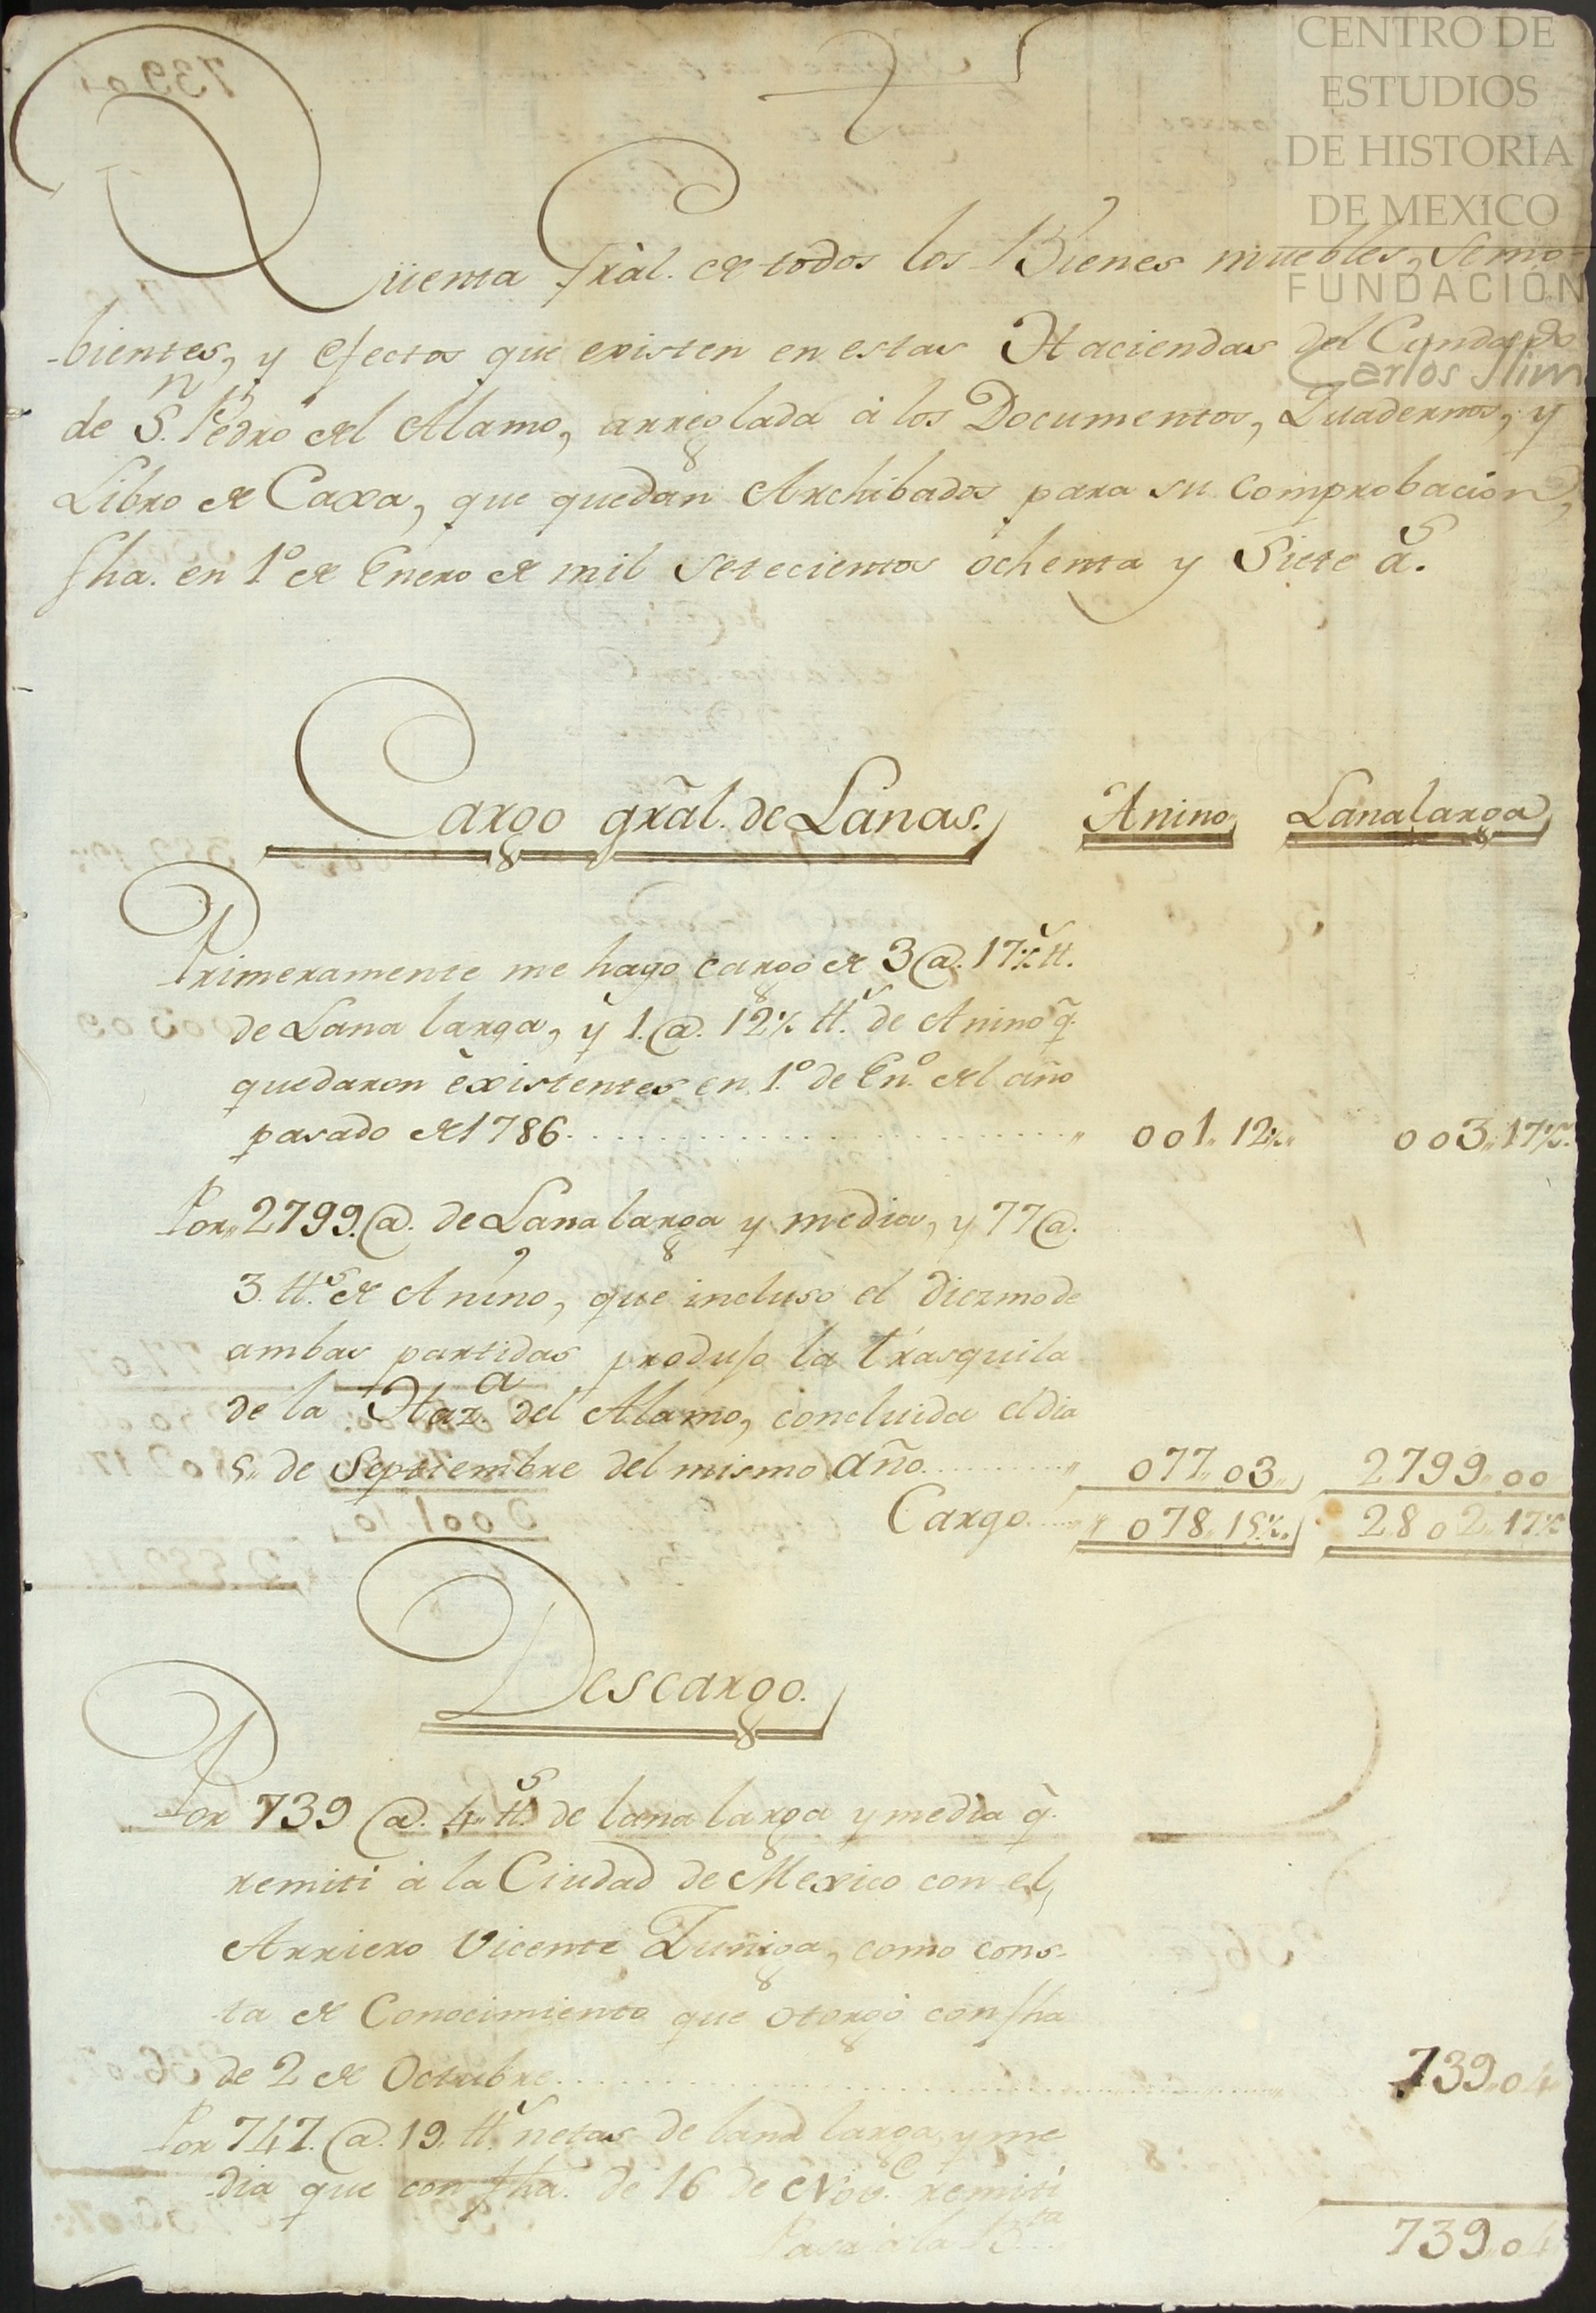 CENTRO DE
ESTUDIOS
DE HISTORIA
DE MEXICO
FUNDACIÓN
Carlos Slim
Qüenta Grâl. de todos los Bienes muebles, semo-
-bientes, y efectos que existen en estas Haciendas del Condado
de Sn. Pedro del Alamo, arreglada à los Documentos, Quadernos, y
Libro de Caxa, que quedan Archibados para su comprobacion,
fha. en 1º de Enero de mil setecientos ochenta y Siete as.
Cargo grãl. de Lanas. Anino Lana larga
Primeramente me hago cargo de 3 @. 17½ ttˢ.
de Lana larga, y 1. @. 12½ ttˢ. de Anino q̃.
quedaron èxistentes en 1º. de Enº. del año
pasado de 1786. 001,, 12½,, 003,, 17½.
Por,, 2799. @. de Lana larga y media, y 77 @.
3. ttˢ. de Anino, que incluso el Diezmo de
ambas partidas produjo la trasquila
de la Hazª. del Alamo, concluida el dia
5,, de Septiembre del mismo año. 077,, 03,, 2799,, 00
Cargo. 078,, 15½. 2802,, 17½
Descargo.
Por 739 @. 4,, ttˢ. de lana larga y media q̃.
remiti à la Ciudad de Mexico con el,
Arriero Vicente Zuñiga, como cons-
ta de Conocimiento que otorgò con fha
de 2 de Octubre. 739,, 04
Por 747. @. 19. ttˢ. netas de lana larga y me
dia que con fha. de 16 de Nove. remiti
739,, 04
Pasa à la Bta